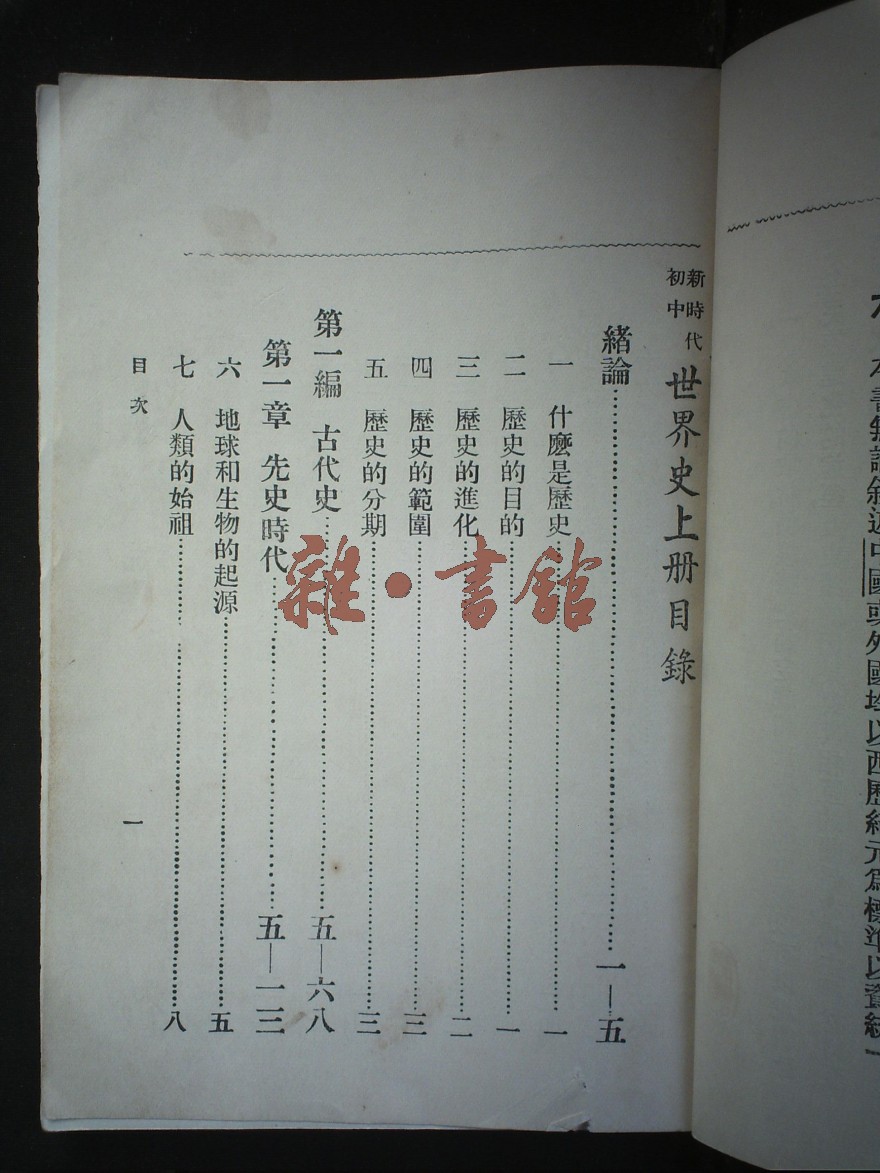 本書無論敘述中國或外國均以西曆紀元爲標準以資統一
新時代
初中
世界史上册目錄
緒論……一—五
一 什麽是歷史……一
二 歷史的目的……一
三 歷史的進化……二
四 歷史的範圍……三
五 歷史的分期……三
第一編 古代史……五—六八
第一章 先史時代……五—一三
六 地球和生物的起源……五
七 人類的始祖……八
目次
一
雜·書館